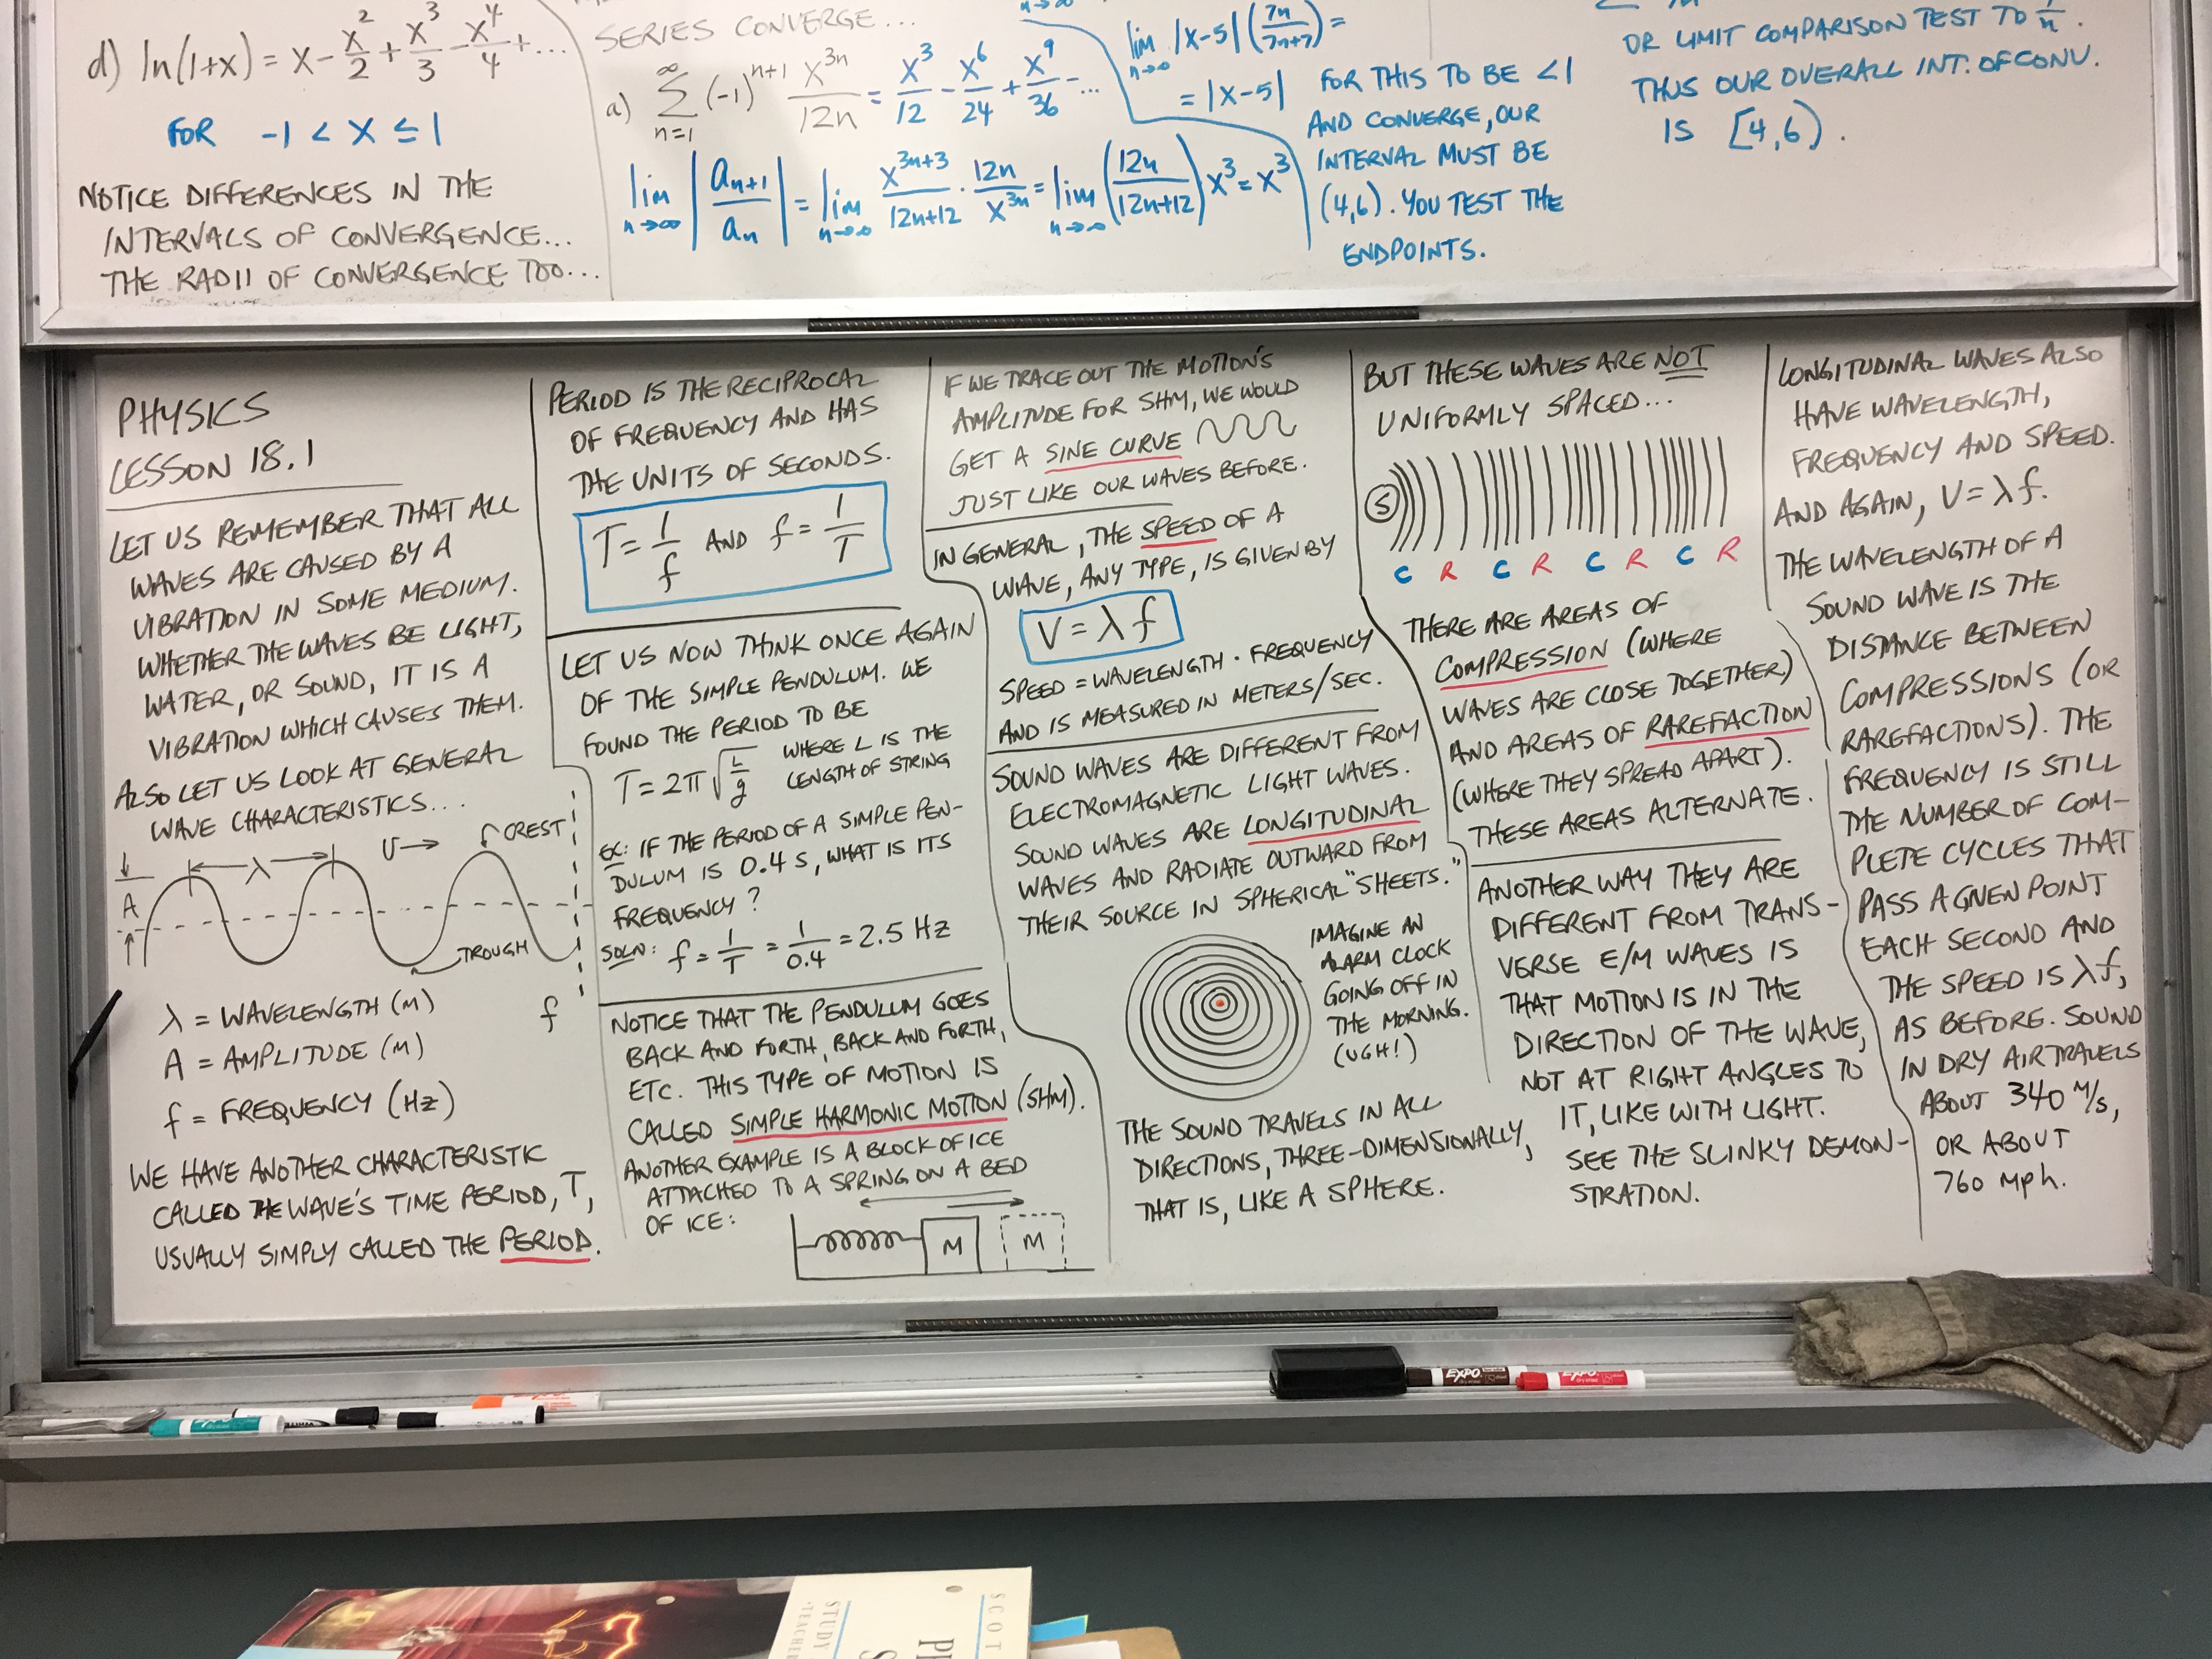 d) ln(1+x) = x - x²/2 + x³/3 - x⁴/4 + ...
FOR -1 < x ≤ 1
NOTICE DIFFERENCES IN THE
INTERVALS OF CONVERGENCE...
THE RADII OF CONVERGENCE TOO...
SERIES CONVERGE...
a) ∞ Σ n=1 (-1)ⁿ⁺¹ x³ⁿ/12n = x³/12 - x⁶/24 + x⁹/36 - ...
lim n→∞ |aₙ₊₁/aₙ| = lim n→∞ x³ⁿ⁺³/12n+12 · 12n/x³ⁿ = lim n→∞ (12n/12n+12) x³ = x³
n→∞
lim n→∞ |x-5| (7n/7n+7) =
= |x-5|
FOR THIS TO BE < 1
AND CONVERGE, OUR
INTERVAL MUST BE
(4,6). YOU TEST THE
ENDPOINTS.
OR LIMIT COMPARISON TEST TO 1/n.
THUS OUR OVERALL INT. OF CONV.
IS [4,6).
PHYSICS
LESSON 18.1
LET US REMEMBER THAT ALL
WAVES ARE CAUSED BY A
VIBRATION IN SOME MEDIUM.
WHETHER THE WAVES BE LIGHT,
WATER, OR SOUND, IT IS A
VIBRATION WHICH CAUSES THEM.
ALSO LET US LOOK AT GENERAL
WAVE CHARACTERISTICS...
λ
v →
CREST
A
TROUGH
f
λ = WAVELENGTH (M)
A = AMPLITUDE (M)
f = FREQUENCY (HZ)
WE HAVE ANOTHER CHARACTERISTIC
CALLED THE WAVE'S TIME PERIOD, T,
USUALLY SIMPLY CALLED THE PERIOD.
PERIOD IS THE RECIPROCAL
OF FREQUENCY AND HAS
THE UNITS OF SECONDS.
T = 1/f AND f = 1/T
LET US NOW THINK ONCE AGAIN
OF THE SIMPLE PENDULUM. WE
FOUND THE PERIOD TO BE
T = 2π √(L/g) WHERE L IS THE
LENGTH OF STRING
EX: IF THE PERIOD OF A SIMPLE PEN-
DULUM IS 0.4 S, WHAT IS ITS
FREQUENCY?
SOLN: f = 1/T = 1/0.4 = 2.5 HZ
NOTICE THAT THE PENDULUM GOES
BACK AND FORTH, BACK AND FORTH,
ETC. THIS TYPE OF MOTION IS
CALLED SIMPLE HARMONIC MOTION (SHM).
ANOTHER EXAMPLE IS A BLOCK OF ICE
ATTACHED TO A SPRING ON A BED
OF ICE:
M M
IF WE TRACE OUT THE MOTION'S
AMPLITUDE FOR SHM, WE WOULD
GET A SINE CURVE
JUST LIKE OUR WAVES BEFORE.
IN GENERAL, THE SPEED OF A
WAVE, ANY TYPE, IS GIVEN BY
V = λ f
SPEED = WAVELENGTH · FREQUENCY
AND IS MEASURED IN METERS/SEC.
SOUND WAVES ARE DIFFERENT FROM
ELECTROMAGNETIC LIGHT WAVES.
SOUND WAVES ARE LONGITUDINAL
WAVES AND RADIATE OUTWARD FROM
THEIR SOURCE IN SPHERICAL "SHEETS."
IMAGINE AN
ALARM CLOCK
GOING OFF IN
THE MORNING.
(UGH!)
THE SOUND TRAVELS IN ALL
DIRECTIONS, THREE-DIMENSIONALLY,
THAT IS, LIKE A SPHERE.
BUT THESE WAVES ARE NOT
UNIFORMLY SPACED...
S
C R C R C R C R
THERE ARE AREAS OF
COMPRESSION (WHERE
WAVES ARE CLOSE TOGETHER)
AND AREAS OF RAREFACTION
(WHERE THEY SPREAD APART).
THESE AREAS ALTERNATE.
ANOTHER WAY THEY ARE
DIFFERENT FROM TRANS-
VERSE E/M WAVES IS
THAT MOTION IS IN THE
DIRECTION OF THE WAVE,
NOT AT RIGHT ANGLES TO
IT, LIKE WITH LIGHT.
SEE THE SLINKY DEMON-
STRATION.
LONGITUDINAL WAVES ALSO
HAVE WAVELENGTH,
FREQUENCY AND SPEED.
AND AGAIN, V = λ f.
THE WAVELENGTH OF A
SOUND WAVE IS THE
DISTANCE BETWEEN
COMPRESSIONS (OR
RAREFACTIONS). THE
FREQUENCY IS STILL
THE NUMBER OF COM-
PLETE CYCLES THAT
PASS A GIVEN POINT
EACH SECOND AND
THE SPEED IS λf,
AS BEFORE. SOUND
IN DRY AIR TRAVELS
ABOUT 340 M/S,
OR ABOUT
760 MPH.
EXPO
EXPO
STUDY
SCOT